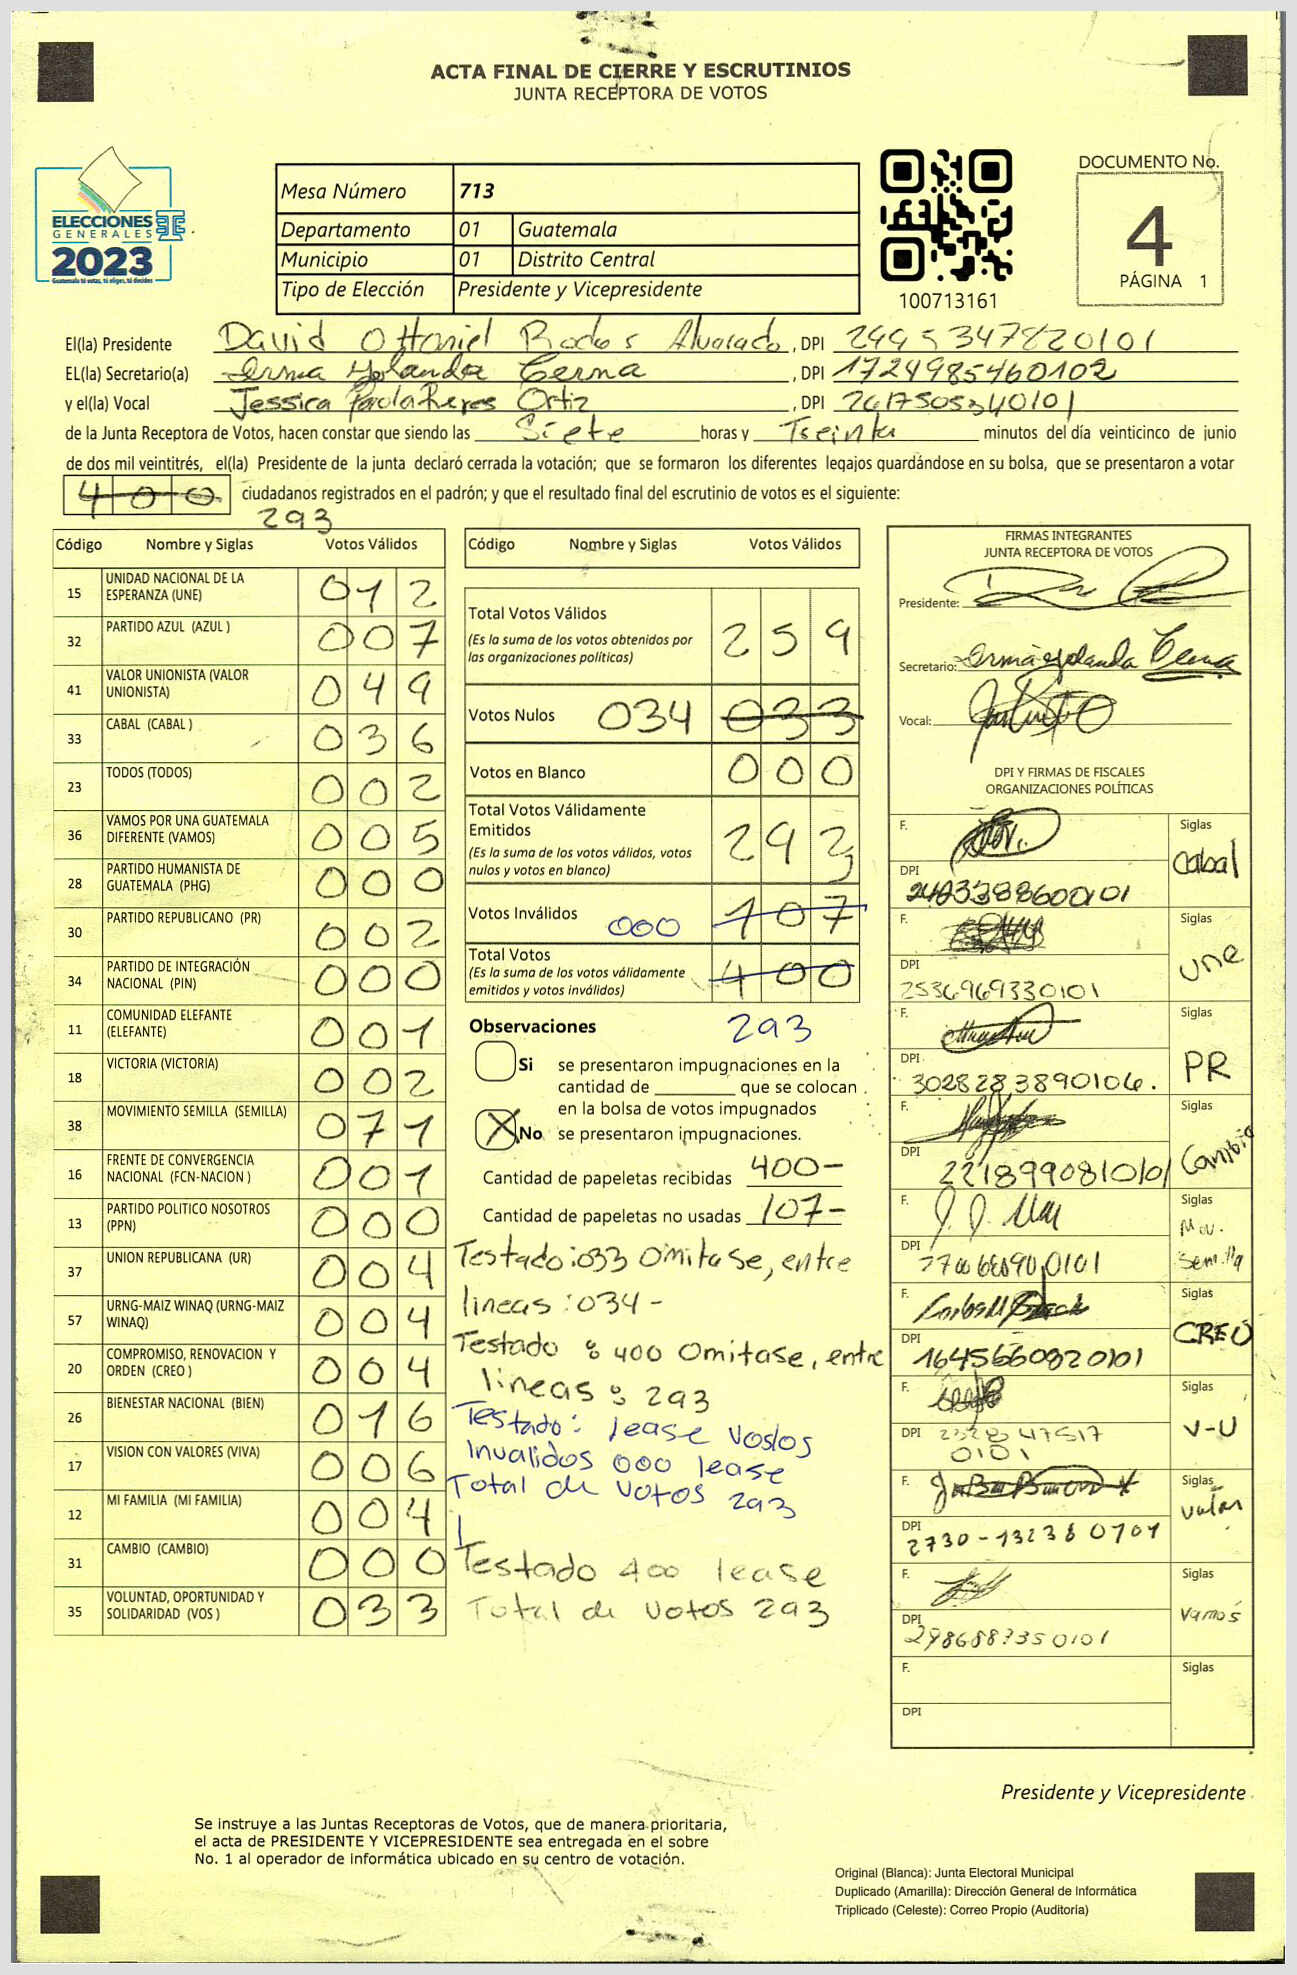 ACTA FINAL DE CIERRE Y ESCRUTINIOS
JUNTA RECEPTORA DE VOTOS
ELECCIONES
GENERALES
2023
Guatemala tú votas, tú eliges, tú decides
Mesa Número 713
Departamento 01 Guatemala
Municipio 01 Distrito Central
Tipo de Elección Presidente y Vicepresidente
100713161
DOCUMENTO No.
4
PÁGINA 1
El(la) Presidente David Othoniel Rodas Alvarado, DPI 2495347820101
EL(la) Secretario(a) Irma Yolanda Cerna, DPI 1724985460102
y el(la) Vocal Jessica Paola Reyes Ortiz, DPI 2617505340101
de la Junta Receptora de Votos, hacen constar que siendo las Siete horas y Treinta minutos del día veinticinco de junio
de dos mil veintitrés, el(la) Presidente de la junta declaró cerrada la votación; que se formaron los diferentes legajos guardándose en su bolsa, que se presentaron a votar
400 ciudadanos registrados en el padrón; y que el resultado final del escrutinio de votos es el siguiente:
293
Código Nombre y Siglas Votos Válidos
15 UNIDAD NACIONAL DE LA ESPERANZA (UNE) 012
32 PARTIDO AZUL (AZUL ) 007
41 VALOR UNIONISTA (VALOR UNIONISTA) 049
33 CABAL (CABAL ) 036
23 TODOS (TODOS) 002
36 VAMOS POR UNA GUATEMALA DIFERENTE (VAMOS) 005
28 PARTIDO HUMANISTA DE GUATEMALA (PHG) 000
30 PARTIDO REPUBLICANO (PR) 002
34 PARTIDO DE INTEGRACIÓN NACIONAL (PIN) 000
11 COMUNIDAD ELEFANTE (ELEFANTE) 001
18 VICTORIA (VICTORIA) 002
38 MOVIMIENTO SEMILLA (SEMILLA) 071
16 FRENTE DE CONVERGENCIA NACIONAL (FCN-NACION ) 001
13 PARTIDO POLITICO NOSOTROS (PPN) 000
37 UNION REPUBLICANA (UR) 004
57 URNG-MAIZ WINAQ (URNG-MAIZ WINAQ) 004
20 COMPROMISO, RENOVACION Y ORDEN (CREO ) 004
26 BIENESTAR NACIONAL (BIEN) 016
17 VISION CON VALORES (VIVA) 006
12 MI FAMILIA (MI FAMILIA) 004
31 CAMBIO (CAMBIO) 000
35 VOLUNTAD, OPORTUNIDAD Y SOLIDARIDAD (VOS ) 033
Código Nombre y Siglas Votos Válidos
Total Votos Válidos 259
(Es la suma de los votos obtenidos por
las organizaciones políticas)
Votos Nulos 034 033
Votos en Blanco 000
Total Votos Válidamente
Emitidos 293
(Es la suma de los votos válidos, votos
nulos y votos en blanco)
Votos Inválidos 000 107
Total Votos 400
(Es la suma de los votos válidamente
emitidos y votos inválidos)
Observaciones 293
Si se presentaron impugnaciones en la
cantidad de que se colocan
en la bolsa de votos impugnados
X No se presentaron impugnaciones.
Cantidad de papeletas recibidas 400-
Cantidad de papeletas no usadas 107-
Testado:033 Omitase, entre
lineas :034-
Testado : 400 Omitase, entre
lineas : 293
Testado: lease Vostos
Invalidos 000 lease
Total de Votos 293
Testado 400 lease
Total de votos 293
FIRMAS INTEGRANTES
JUNTA RECEPTORA DE VOTOS
Presidente:
Secretario: Irma Yolanda Cerna
Vocal:
DPI Y FIRMAS DE FISCALES
ORGANIZACIONES POLÍTICAS
F. Siglas
DPI Cabal
F. Siglas
DPI 2536969330101 une
F. Siglas
DPI 3028283890106. PR
F. Siglas
DPI 2218990810101 Cambio
F. Siglas
DPI Mov. Semilla
F. Siglas
DPI 1645660820101 CREO
F. Siglas
DPI 2328475170101 V-U
F. Siglas
DPI 2730-13238 0701 Valor
F. Siglas
DPI Vamos
F. Siglas
DPI
Presidente y Vicepresidente
Se instruye a las Juntas Receptoras de Votos, que de manera prioritaria,
el acta de PRESIDENTE Y VICEPRESIDENTE sea entregada en el sobre
No. 1 al operador de informática ubicado en su centro de votación.
Original (Blanca): Junta Electoral Municipal
Duplicado (Amarilla): Dirección General de Informática
Triplicado (Celeste): Correo Propio (Auditoría)